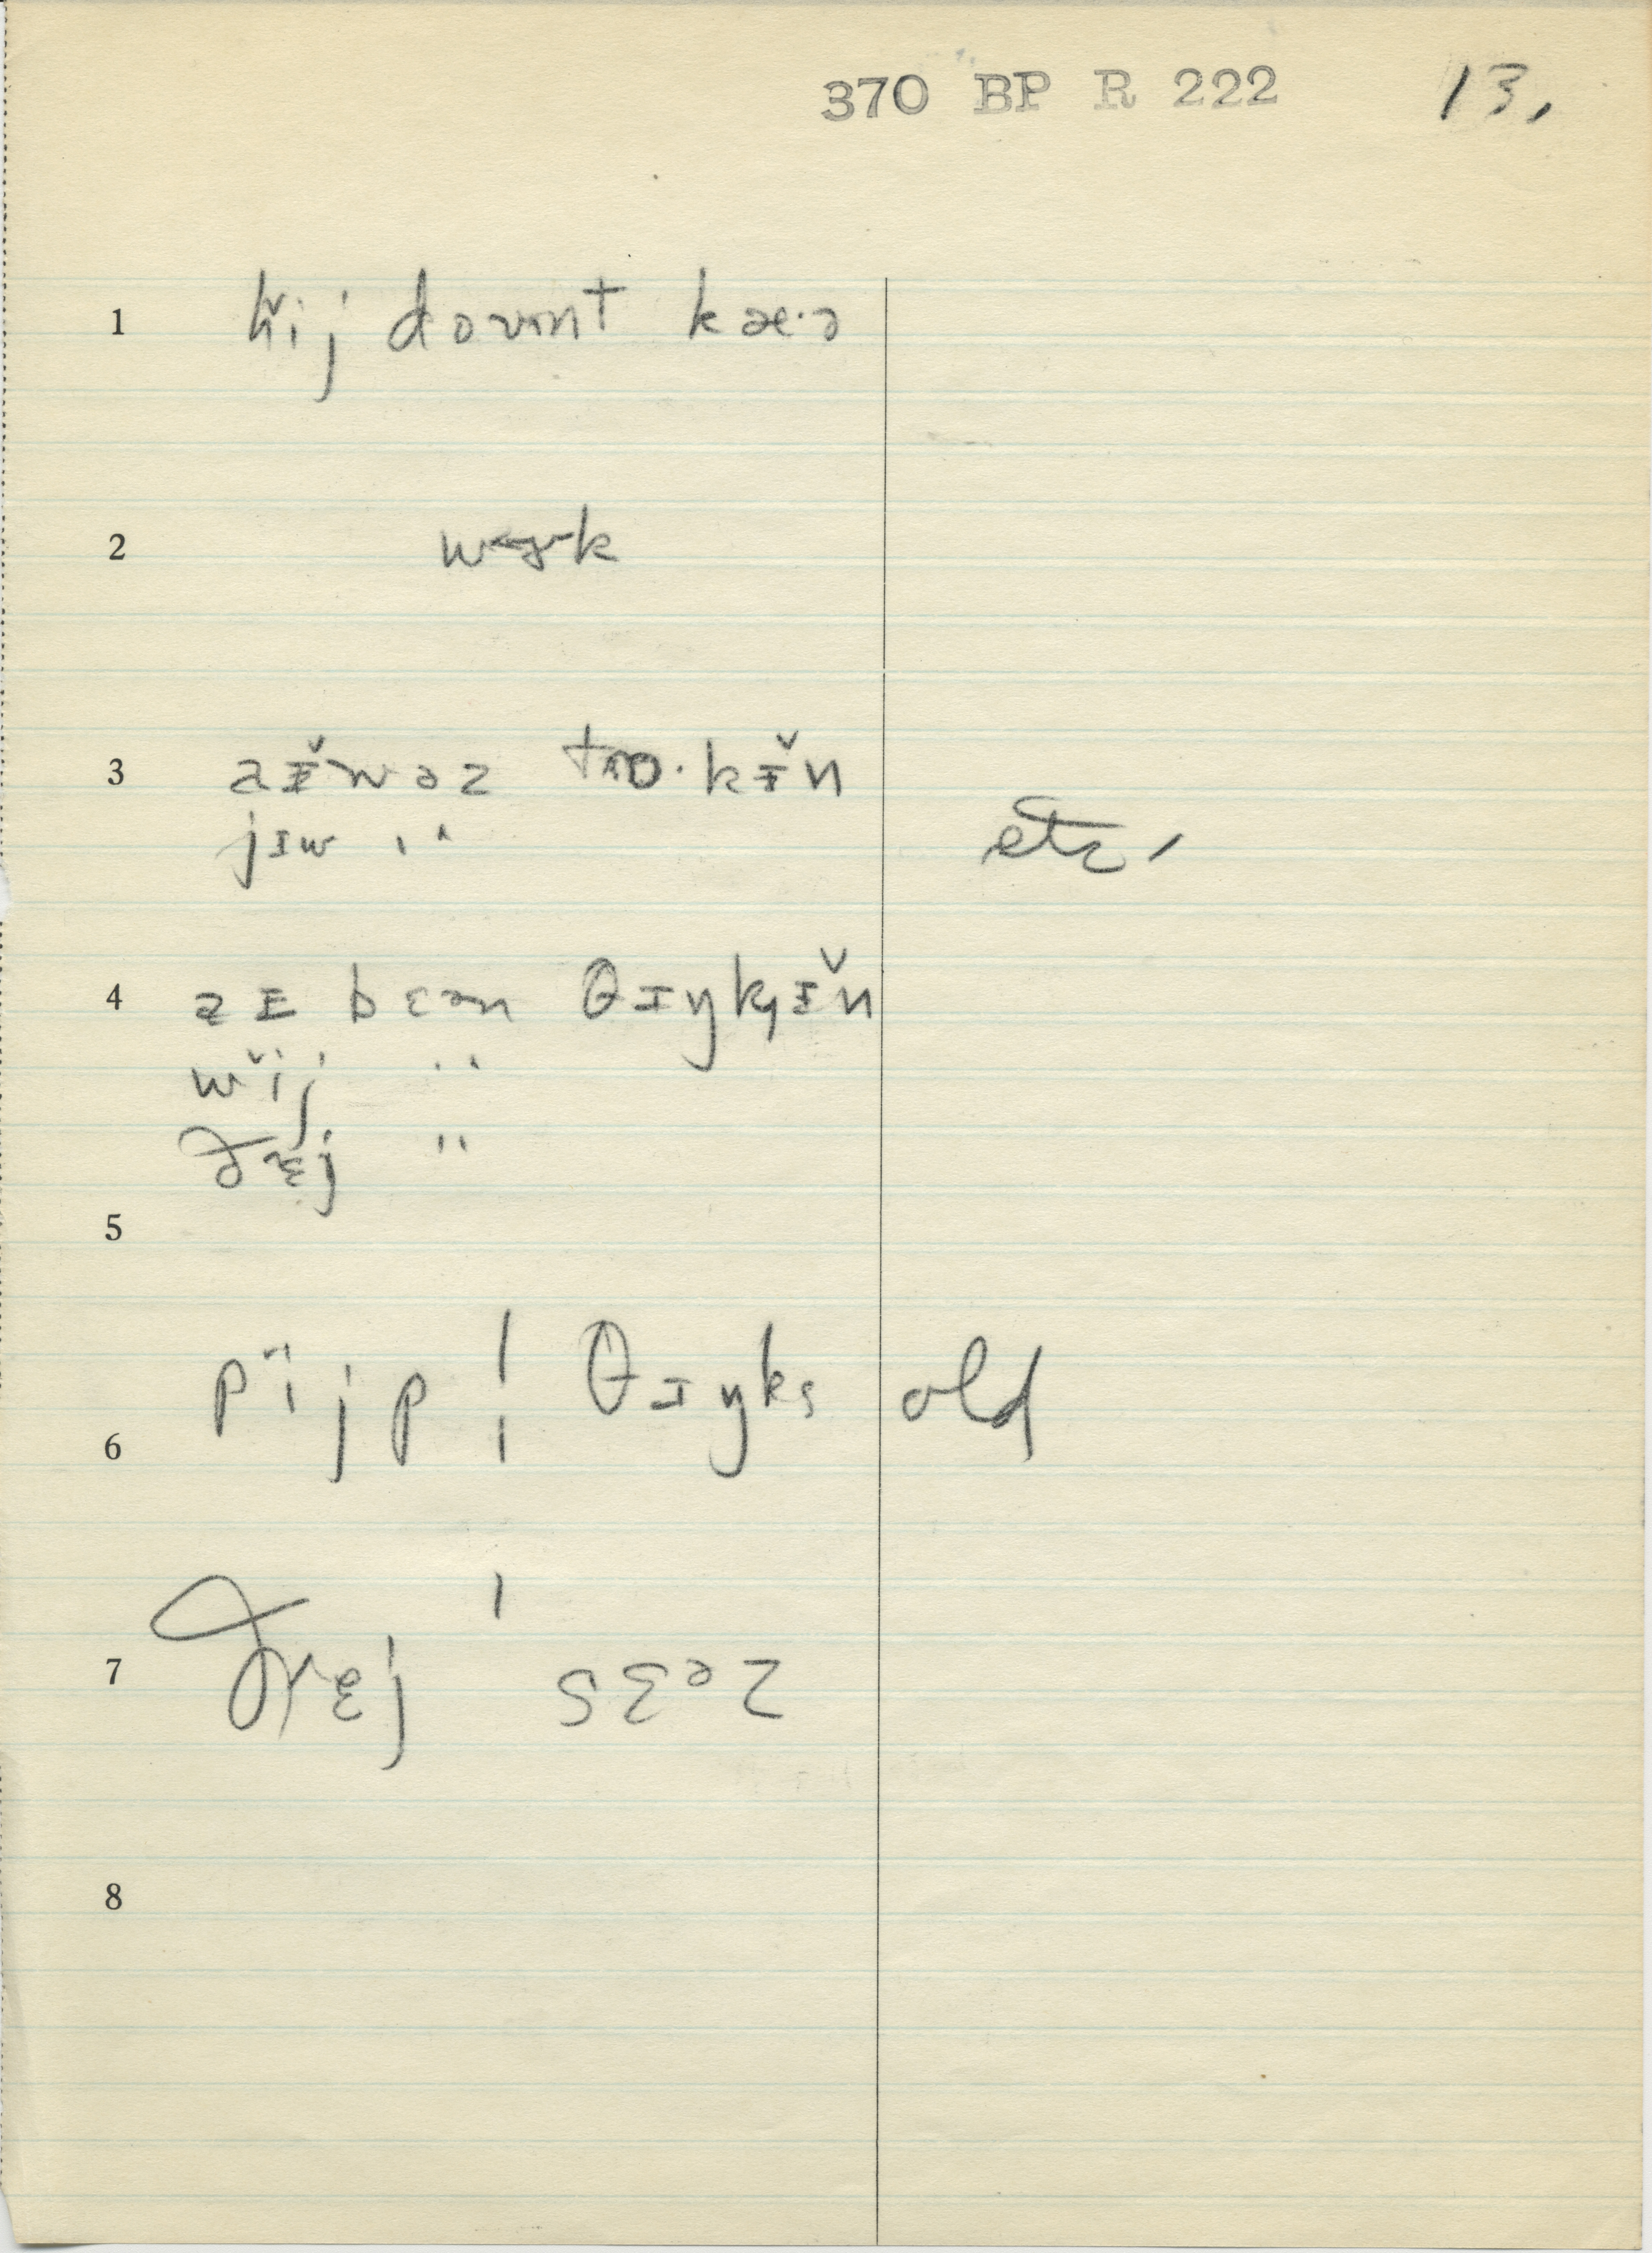 370 BP R 222 13.
1 hĭij doʊnt kæ·ə
2 wɚk
3 aɪ̆wəz tɔ·kɪ̆n
jɪw " etc.
4 aɪ bɛən θɪŋkɪ̆n
wĭij "
ðɛj "
5
pĭijp | θɪŋks old
6
7 ðɛj ' sɛəz
8